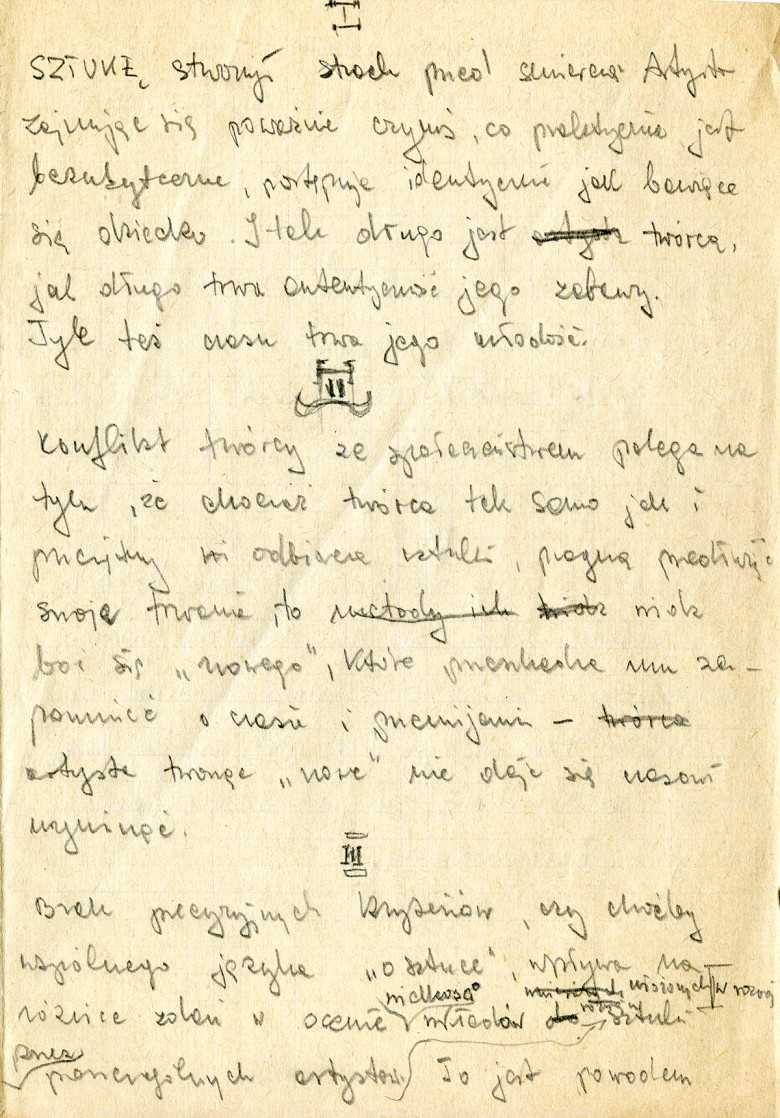 I
SZTUKĘ stworzył strach przed śmiercią. Artysta
zajmując się poważnie czymś, co praktycznie jest
bezużyteczne, postępuje identycznie jak bawiące
się dziecko. I tak długo jest artystą twórcą,
jak długo trwa autentyczność jego zabawy.
Tyle też czasu trwa jego młodość.
II
Konflikt twórcy ze społeczeństwem polega na
tym, że chociaż twórca tak samo jak i
przeciętny odbiorca sztuki, pragną przedłużyć
swoje trwanie, to metody ich widz widz
boi się „nowego”, które przeszkadza mu za-
pomnieć o czasie i przemijaniu – twórca
artysta tworząc „nowe” nie daje się czasowi
wyminąć.
III
Brak precyzyjnych kryteriów, czy choćby
wspólnego języka „o sztuce”, wpływa na
wielkości wniesionych w rozwój
różnice zdań w ocenie wkładów do sztuki
przez
poszczególnych artystów. To jest powodem